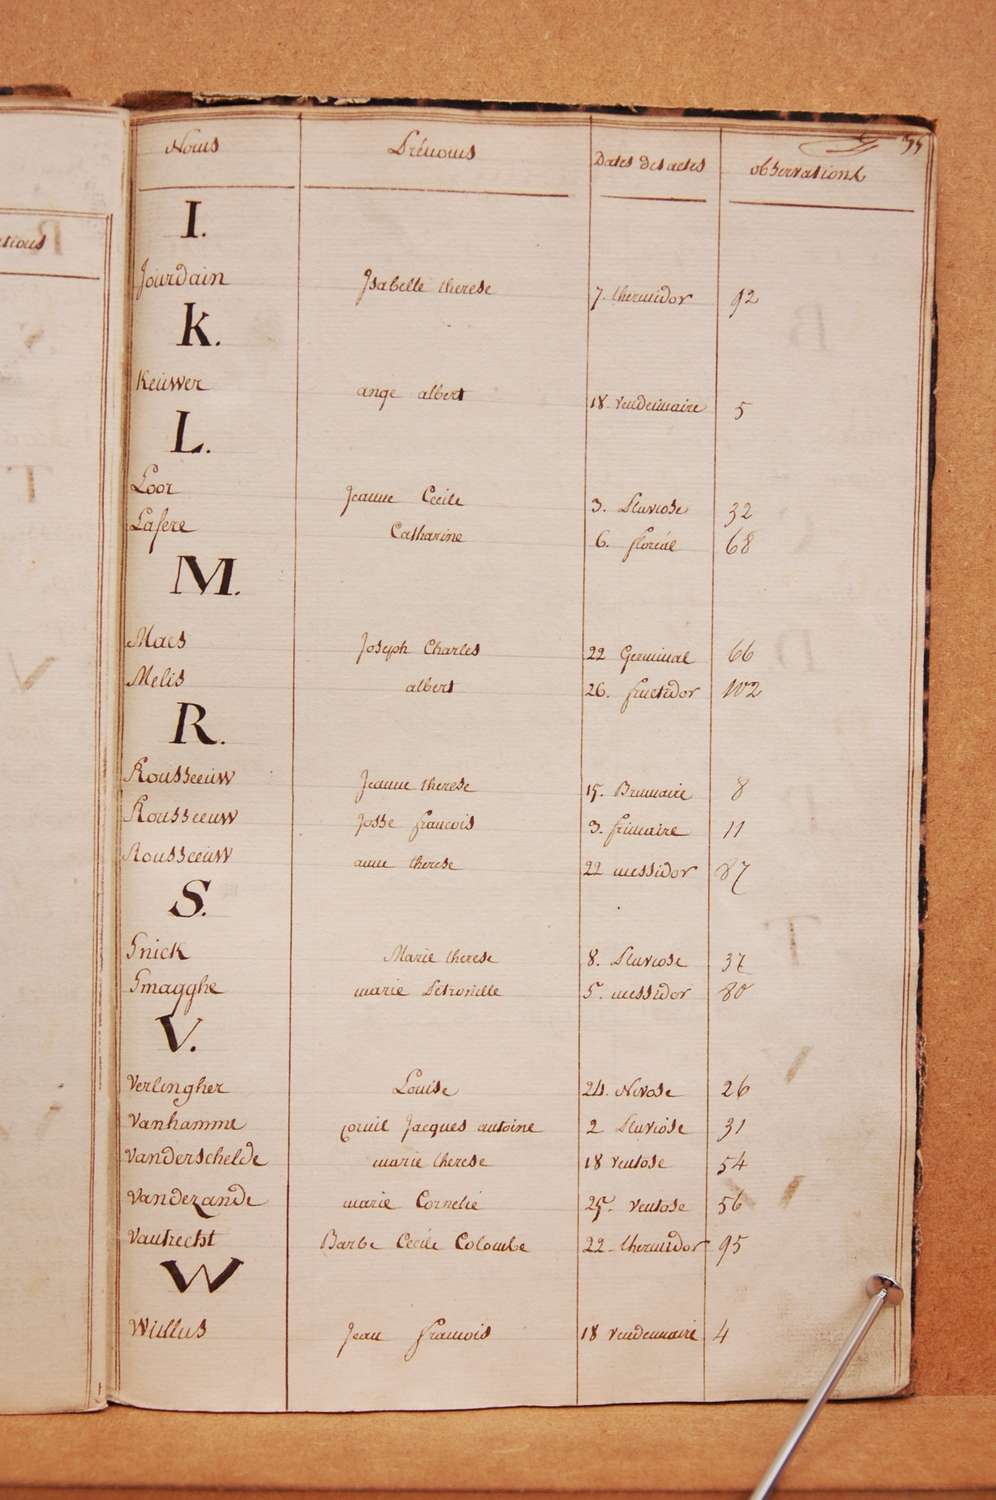 Noms Prénoms Dates des actes observations
I.
Jourdain Isabelle therese 7. thermidor 92
K.
Keuwer ange albert 18. Vendemiaire 5
L.
Loor Jeanne Cecile 3. Pluviose 32
Lafere Catharine 6. floréal 68
M.
Maes Joseph Charles 22 Germinal 66
Melis albert 26. fructidor 102
R.
Rousseeuw Jeanne therese 15. Brumaire 8
Rousseeuw Josse francois 3. frimaire 11
Rousseeuw anne therese 22 messidor 87
S.
Snick Marie therese 8. Pluviose 37
Smagghe marie Petronille 5. messidor 80
V.
Verlingher Louise 24. Nivose 26
Vanhamme cornil Jacques antoine 2 Pluviôse 31
Vanderschelde marie therese 18 Ventose 54
Vandezande marie Cornelie 25. Ventose 56
Vautrecht Barbe Cecile Colombe 22. thermidor 95
W
Wullus Jean francois 18 Vendemiaire 4